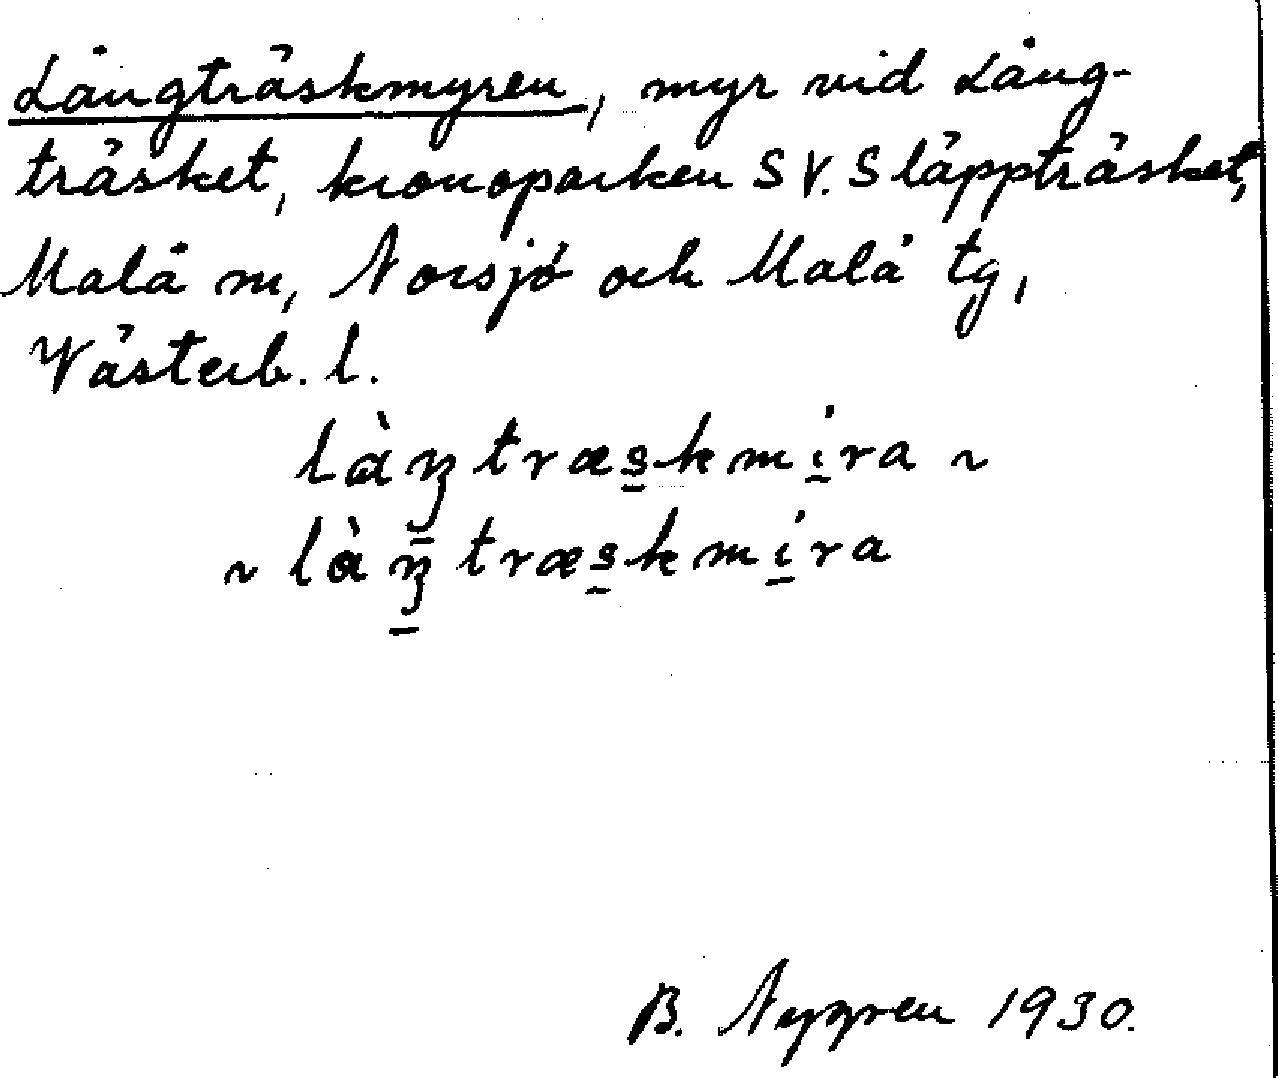 Långträskmyren, myr vid Lång-
träsket, kronoparken SV. Släppträsket,
Malå sn, Norsjö och Malå tg,
Västerb. l.
làŋtræs̲kmi̲ra ~
~ làŋ̲træs̲kmi̲ra
B. Nygren 1930.